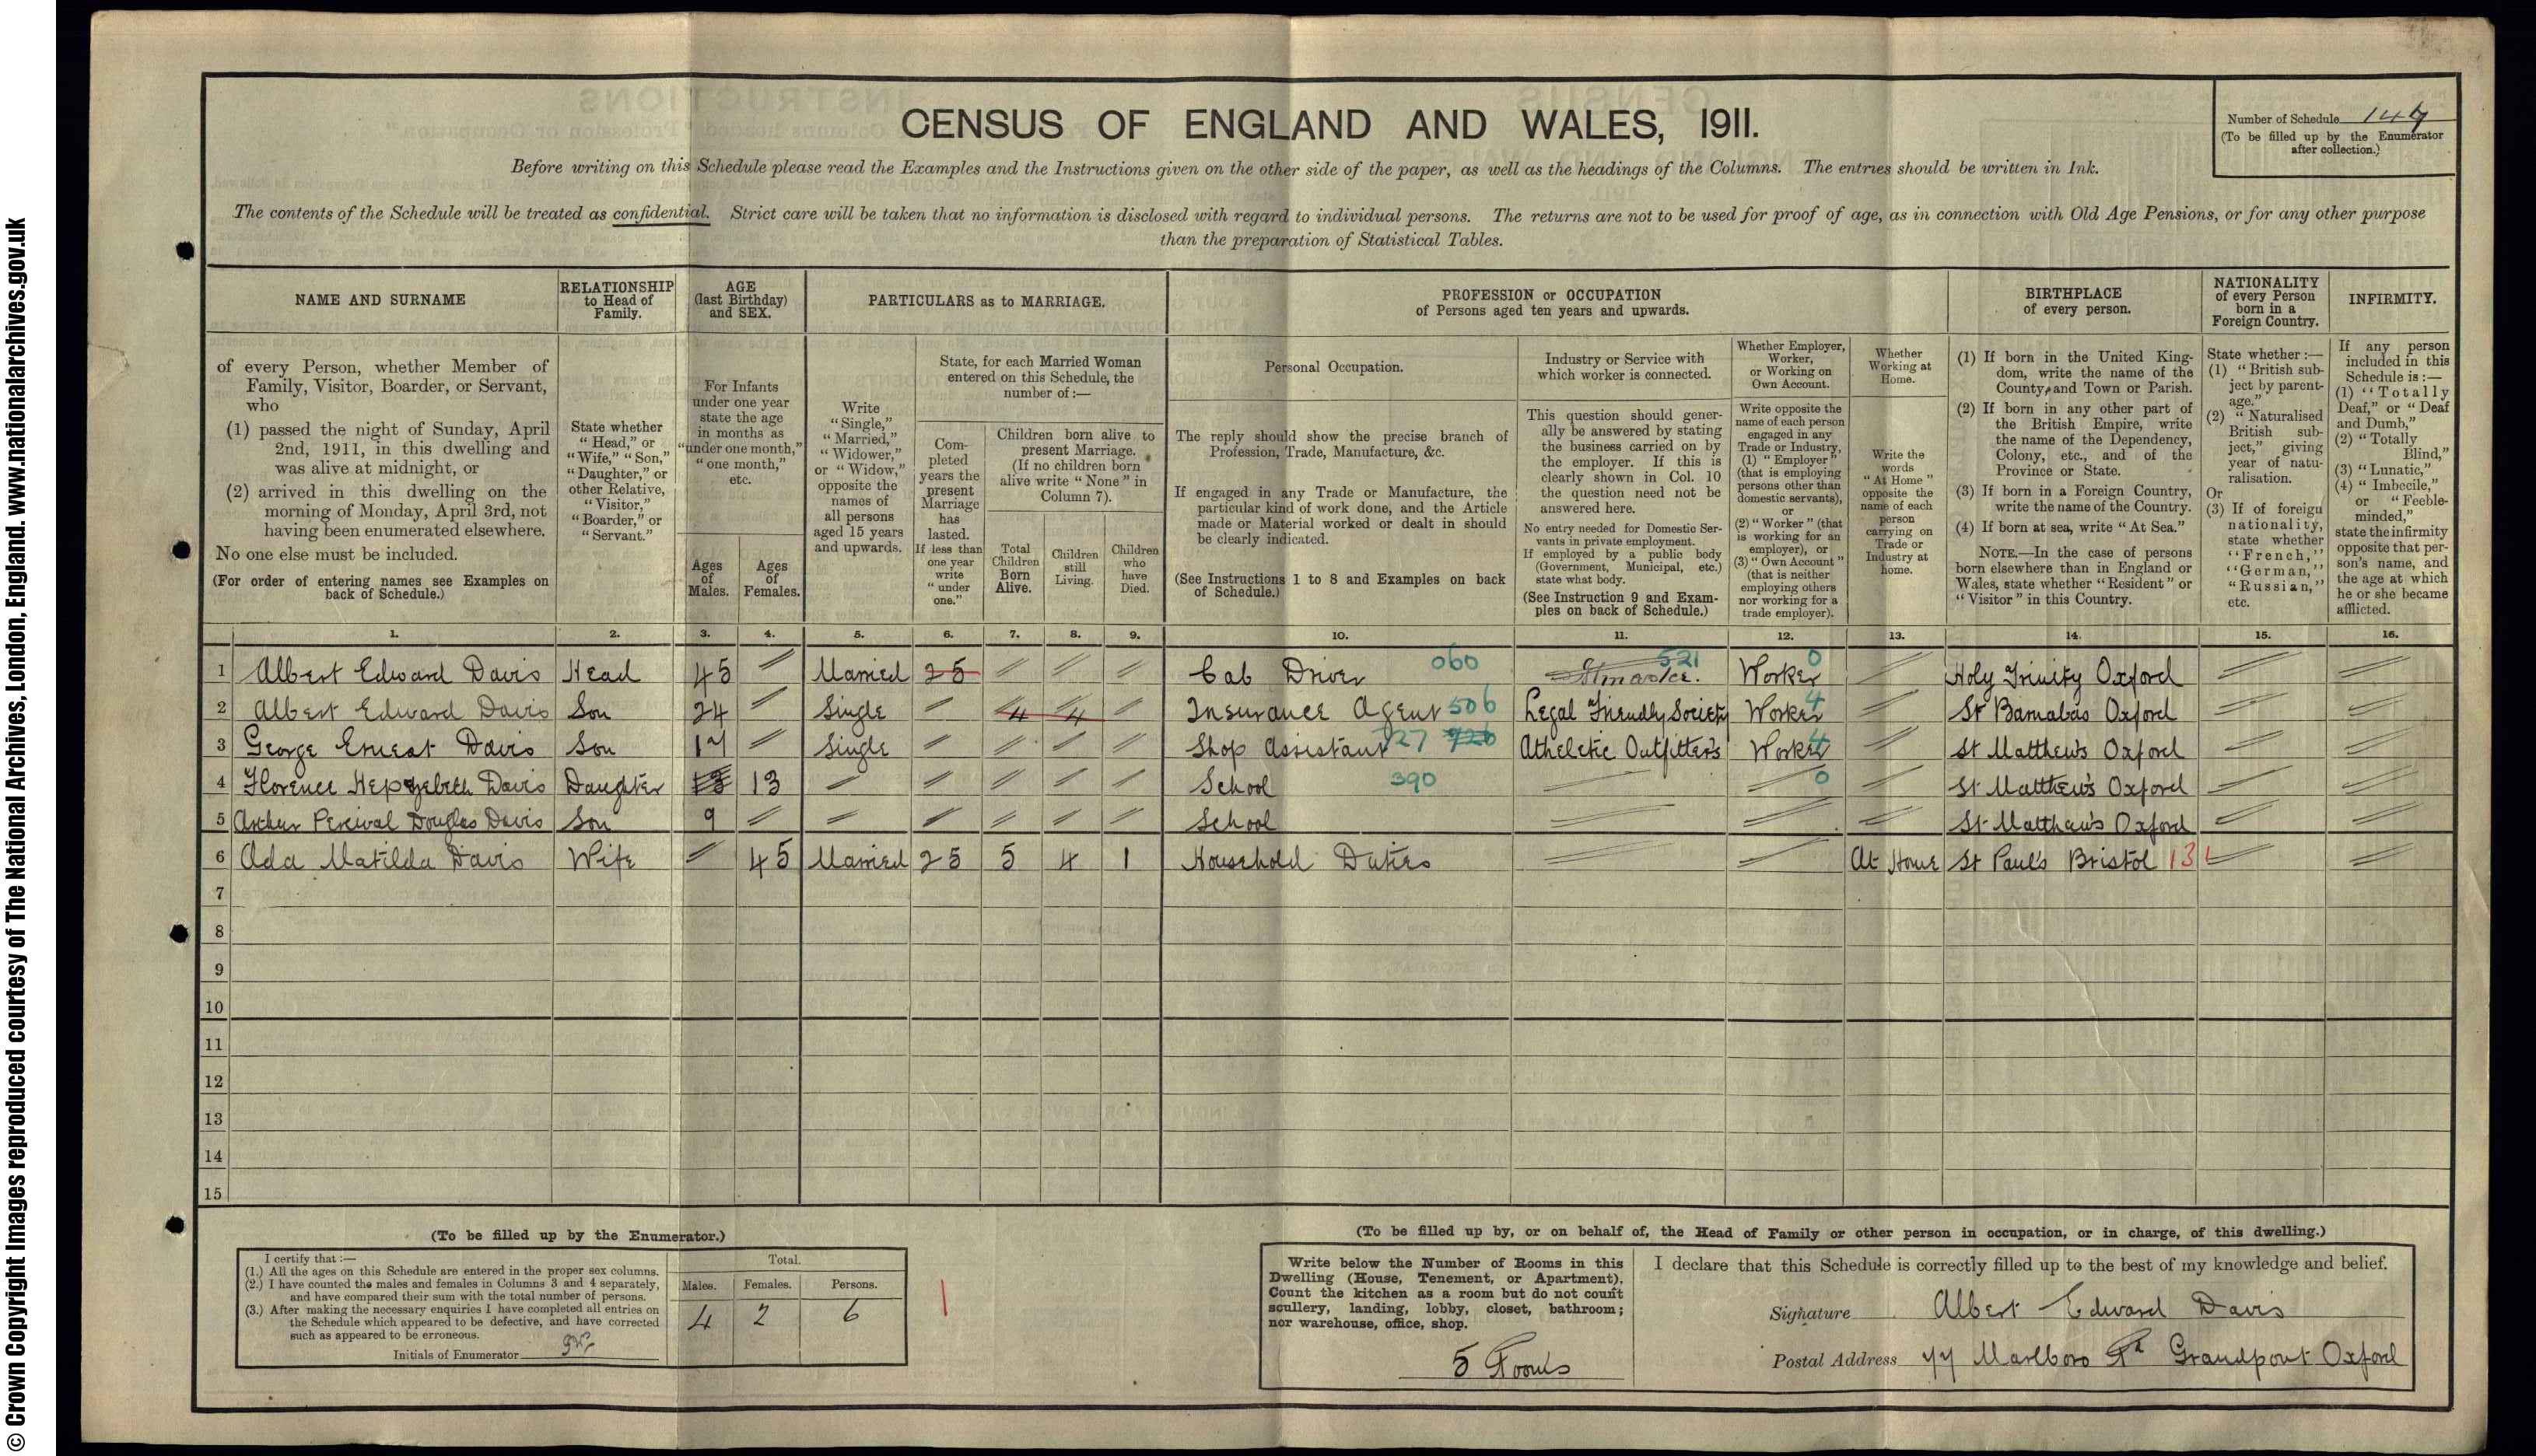 © Crown Copyright Images reproduced courtesy of The National Archives, London, England. www.nationalarchives.gov.uk
CENSUS OF ENGLAND AND WALES, 1911.
Number of Schedule 147
(To be filled up by the Enumerator
after collection.)
Before writing on this Schedule please read the Examples and the Instructions given on the other side of the paper, as well as the headings of the Columns. The entries should be written in Ink.
The contents of the Schedule will be treated as confidential. Strict care will be taken that no information is disclosed with regard to individual persons. The returns are not to be used for proof of age, as in connection with Old Age Pensions, or for any other purpose
than the preparation of Statistical Tables.
NAME AND SURNAME
of every Person, whether Member of
Family, Visitor, Boarder, or Servant,
who
(1) passed the night of Sunday, April
2nd, 1911, in this dwelling and
was alive at midnight, or
(2) arrived in this dwelling on the
morning of Monday, April 3rd, not
having been enumerated elsewhere.
No one else must be included.
(For order of entering names see Examples on
back of Schedule.)
RELATIONSHIP
to Head of
Family.
State whether
"Head," or
"Wife," "Son,"
"Daughter," or
other Relative,
"Visitor,"
"Boarder," or
"Servant."
AGE
(last Birthday)
and SEX.
For Infants
under one year
state the age
in months as
"under one month,"
"one month,"
etc.
Ages
of
Males.
Ages
of
Females.
PARTICULARS as to MARRIAGE.
Write
"Single,"
"Married,"
"Widower,"
or "Widow,"
opposite the
names of
all persons
aged 15 years
and upwards.
State, for each Married Woman
entered on this Schedule, the
number of:—
Com-
pleted
years the
present
Marriage
has
lasted.
If less than
one year
write
"under
one."
Children born alive to
present Marriage.
(If no children born
alive write "None" in
Column 7).
Total
Children
Born
Alive.
Children
still
Living.
Children
who
have
Died.
PROFESSION or OCCUPATION
of Persons aged ten years and upwards.
Personal Occupation.
The reply should show the precise branch of
Profession, Trade, Manufacture, &c.
If engaged in any Trade or Manufacture, the
particular kind of work done, and the Article
made or Material worked or dealt in should
be clearly indicated.
(See Instructions 1 to 8 and Examples on back
of Schedule.)
Industry or Service with
which worker is connected.
This question should gener-
ally be answered by stating
the business carried on by
the employer. If this is
clearly shown in Col. 10
the question need not be
answered here.
No entry needed for Domestic Ser-
vants in private employment.
If employed by a public body
(Government, Municipal, etc.)
state what body.
(See Instruction 9 and Exam-
ples on back of Schedule.)
Whether Employer,
Worker,
or Working on
Own Account.
Write opposite the
name of each person
engaged in any
Trade or Industry,
(1) "Employer"
(that is employing
persons other than
domestic servants),
or
(2) "Worker" (that
is working for an
employer), or
(3) "Own Account"
(that is neither
employing others
nor working for a
trade employer).
Whether
Working at
Home.
Write the
words
"At Home"
opposite the
name of each
person
carrying on
Trade or
Industry at
home.
BIRTHPLACE
of every person.
(1) If born in the United King-
dom, write the name of the
County, and Town or Parish.
(2) If born in any other part of
the British Empire, write
the name of the Dependency,
Colony, etc., and of the
Province or State.
(3) If born in a Foreign Country,
write the name of the Country.
(4) If born at sea, write "At Sea."
NOTE.—In the case of persons
born elsewhere than in England or
Wales, state whether "Resident" or
"Visitor" in this Country.
NATIONALITY
of every Person
born in a
Foreign Country.
State whether :—
(1) "British sub-
ject by parent-
age."
(2) "Naturalised
British sub-
ject," giving
year of natu-
ralisation.
Or
(3) If of foreign
nationality,
state whether
"French,"
"German,"
"Russian,"
etc.
INFIRMITY.
If any person
included in this
Schedule is :—
(1) "Totally
Deaf," or "Deaf
and Dumb,"
(2) "Totally
Blind,"
(3) "Lunatic,"
(4) "Imbecile,"
or "Feeble-
minded,"
state the infirmity
opposite that per-
son's name, and
the age at which
he or she became
afflicted.
1. 2. 3. 4. 5. 6. 7. 8. 9. 10. 11. 12. 13. 14. 15. 16.
1 Albert Edward Davis Head 45 Married 25 Cab Driver 060 521 Worker 0 Holy Trinity Oxford
2 Albert Edward Davis Son 24 Single 4 4 Insurance Agent 506 Legal Friendly Society Worker 4 St Barnabas Oxford
3 George Ernest Davis Son 17 Single Shop Assistant 727 926 Atheletic Outfitters Worker 4 St Matthews Oxford
4 Florence Hepzebeth Davis Daughter 13 13 School 390 0 St Matthew's Oxford
5 Arthur Percival Douglas Davis Son 9 School St Matthaw's Oxford
6 Ada Matilda Davis Wife 45 Married 25 5 4 1 Household Duties At Home St Paul's Bristol 131
7
8
9
10
11
12
13
14
15
(To be filled up by the Enumerator.)
I certify that :—
(1.) All the ages on this Schedule are entered in the proper sex columns.
(2.) I have counted the males and females in Columns 3 and 4 separately,
and have compared their sum with the total number of persons.
(3.) After making the necessary enquiries I have completed all entries on
the Schedule which appeared to be defective, and have corrected
such as appeared to be erroneous.
Initials of Enumerator
Total.
Males. Females. Persons.
4 2 6
(To be filled up by, or on behalf of, the Head of Family or other person in occupation, or in charge, of this dwelling.)
Write below the Number of Rooms in this
Dwelling (House, Tenement, or Apartment).
Count the kitchen as a room but do not count
scullery, landing, lobby, closet, bathroom;
nor warehouse, office, shop.
5 Rooms
I declare that this Schedule is correctly filled up to the best of my knowledge and belief.
Signature Albert Edward Davis
Postal Address 77 Marlboro Rd Grandpont Oxford